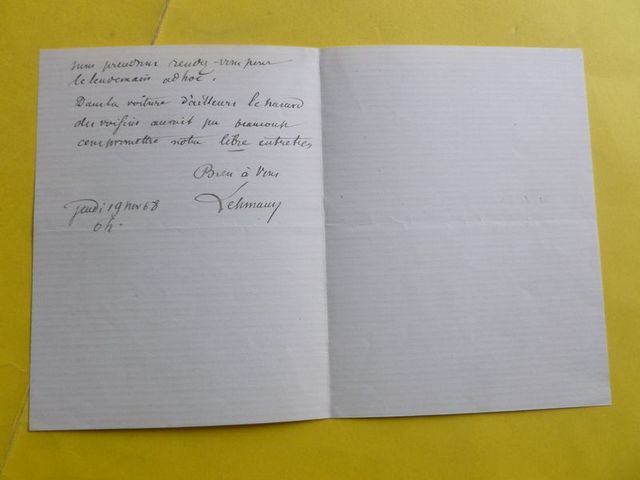 nous prendrons rendez-vous pour
le lendemain ad hoc.
Dans la voiture d'ailleurs le hasard
des voisins aurait pu beaucoup
compromettre notre libre entretien
Bien à Vous
Lehmann
Jeudi 19 nov 68